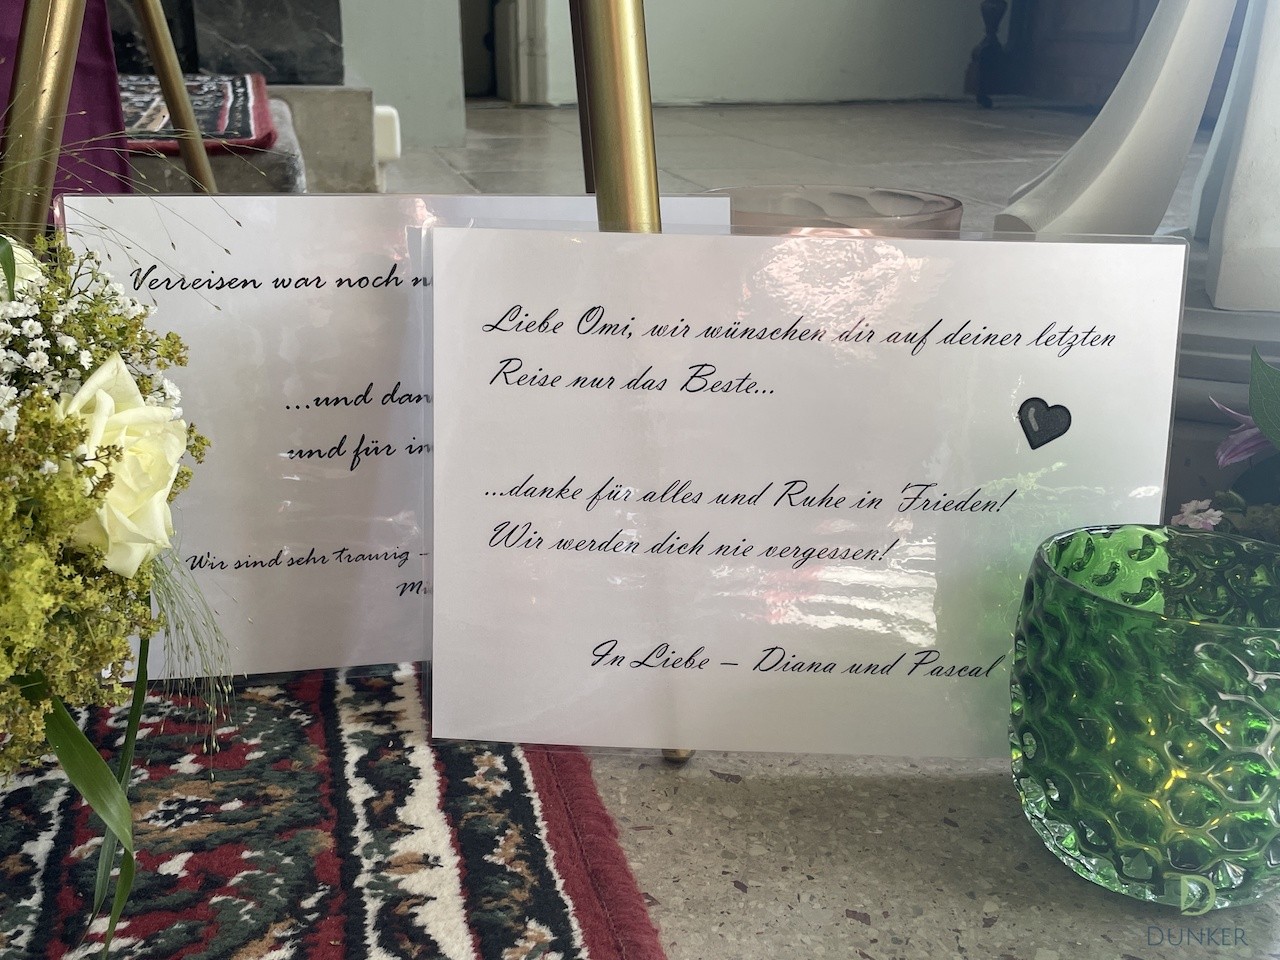 Verreisen war noch
...und dan
und für in
Wir sind sehr traurig –
Liebe Omi, wir wünschen dir auf deiner letzten
Reise nur das Beste...
...danke für alles und Ruhe in Frieden!
Wir werden dich nie vergessen!
In Liebe – Diana und Pascal
D
DUNKER